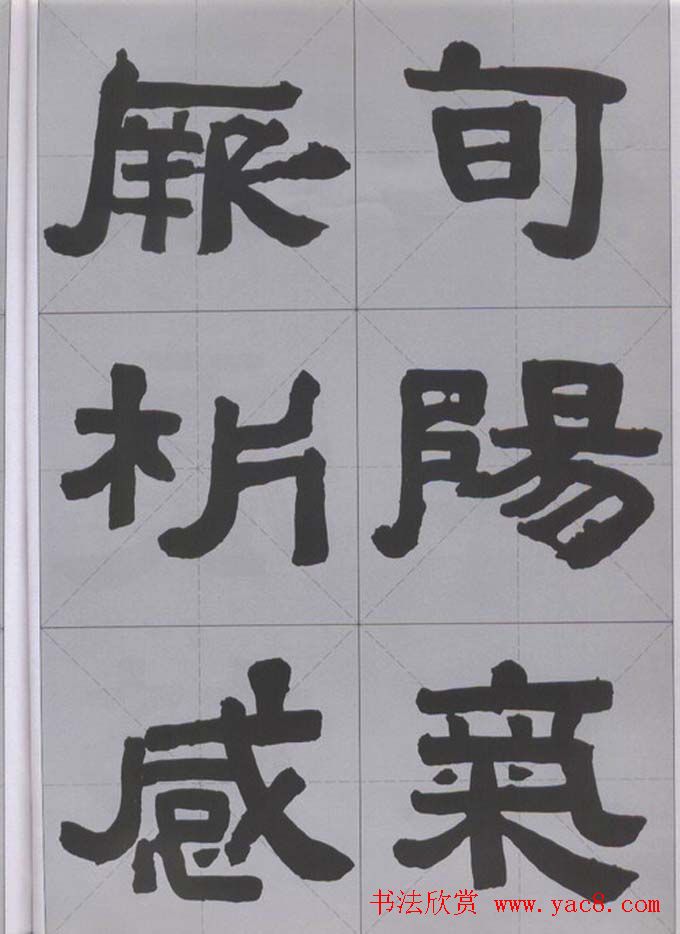 旬陽氣
厥析感
书法欣赏 www.yac8.com